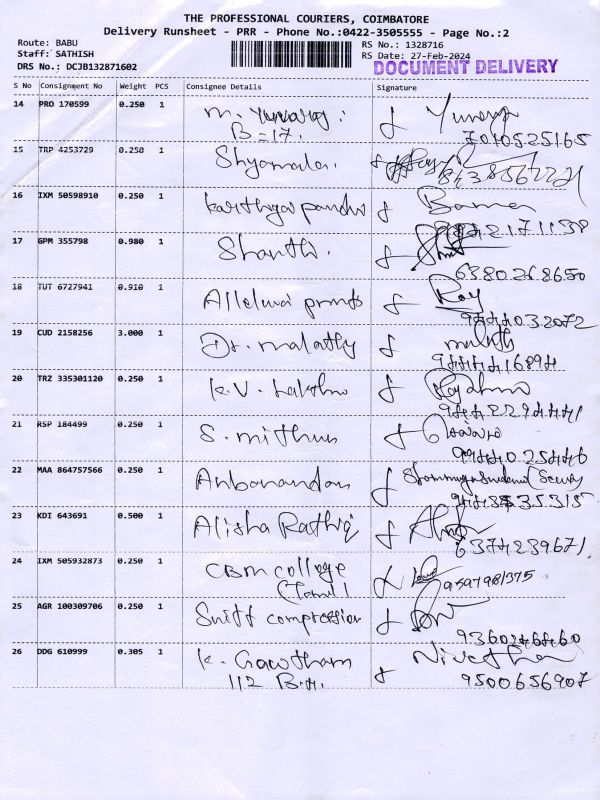 THE PROFESSIONAL COURIERS, COIMBATORE
Delivery Runsheet - PRR - Phone No.:0422-3505555 - Page No.:2
Route: BABU
Staff: SATHISH
DRS No.: DCJB132871602
RS No.: 1328716
RS Date: 27-Feb-2024
DOCUMENT DELIVERY
S No Consignment No Weight PCS Consignee Details Signature
14 PRO 170599 0.250 1
B-17. 7010525165
15 TRP 4253729 0.250 1 Shyamala.
16 IXM 50598910 0.250 1
17 GPM 355798 0.980 1 Shanthi.
6380268650
18 TUT 6727941 0.910 1 Alleluia prints Roy
19 CUD 2158256 3.000 1 Dr. malathy
20 TRZ 335301120 0.250 1 K.V.
21 RSP 184499 0.250 1 S. mithun
22 MAA 864757566 0.250 1 Anbanandan
23 KDI 643691 0.500 1 Alisha Rathi
6374239671
24 IXM 505932873 0.250 1 CBM college
(Tamil 9597981375
25 AGR 100309706 0.250 1 Swift compression
26 DDG 610999 0.305 1 K. Gowtham Nivetha
112 B.H. 9500656907